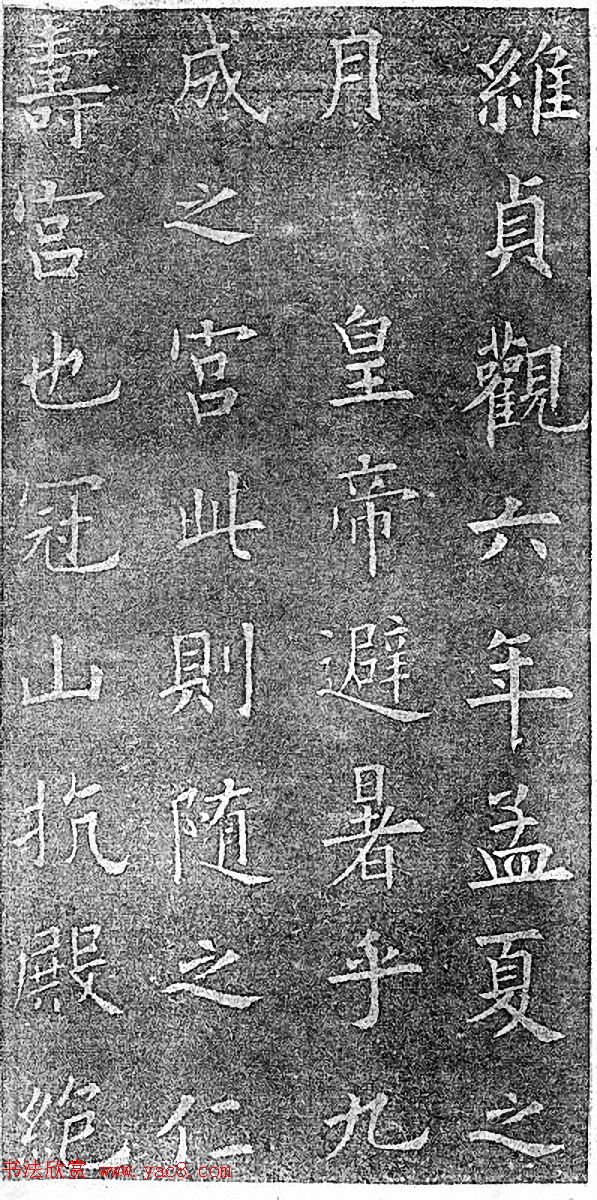 維貞觀六年孟夏之
月　皇帝避暑乎九
成之宮此則随之仁
壽宮也冠山抗殿絶
书法欣赏 www.yac8.com